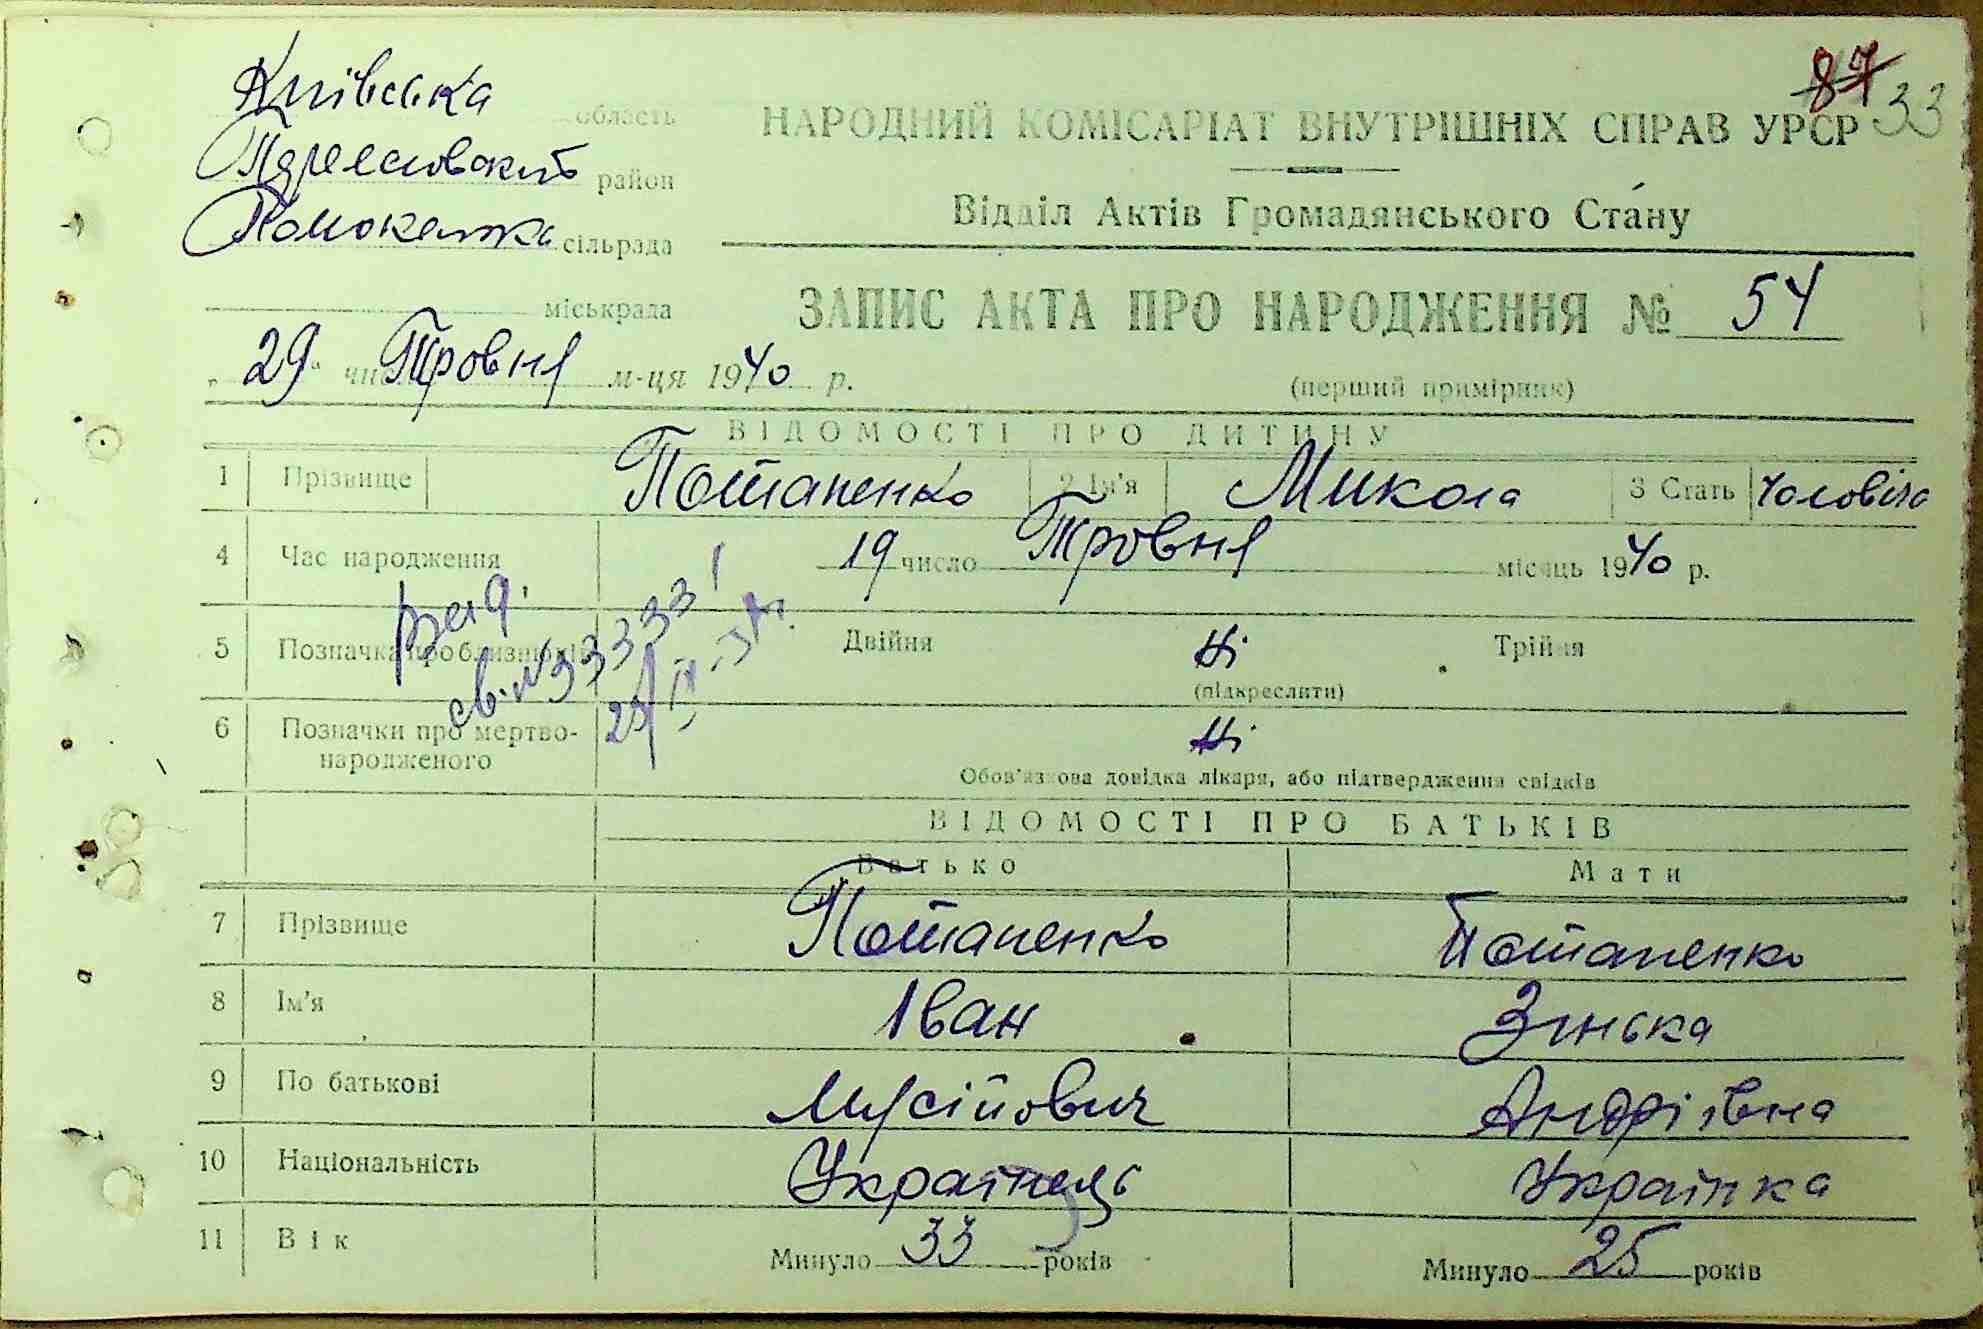 87 33
Київська область
район
сільрада
міськрада
НАРОДНИЙ КОМІСАРІАТ ВНУТРІШНІХ СПРАВ УРСР
Відділ Актів Громадянського Стану
ЗАПИС АКТА ПРО НАРОДЖЕННЯ № 54
(перший примірник)
„29“ число Тровня м-ця 1940 р.
ВІДОМОСТІ ПРО ДИТИНУ
1 Прізвище Потапенко 2 Ім'я Микола 3 Стать
4 Час народження 19 число Тровня місяць 1940 р.
5 Позначка про близнюків Двійня Ні Трійня
(підкреслити)
6 Позначки про мертво-
народженого Ні
Обов'язкова довідка лікаря, або підтвердження свідків
ВІДОМОСТІ ПРО БАТЬКІВ
Батько Мати
7 Прізвище Потапенко Потапенко
8 Ім'я Іван Зінька
9 По батькові Мусійович Андріївна
10 Національність Українець Українка
11 Вік Минуло 33 років Минуло 25 років